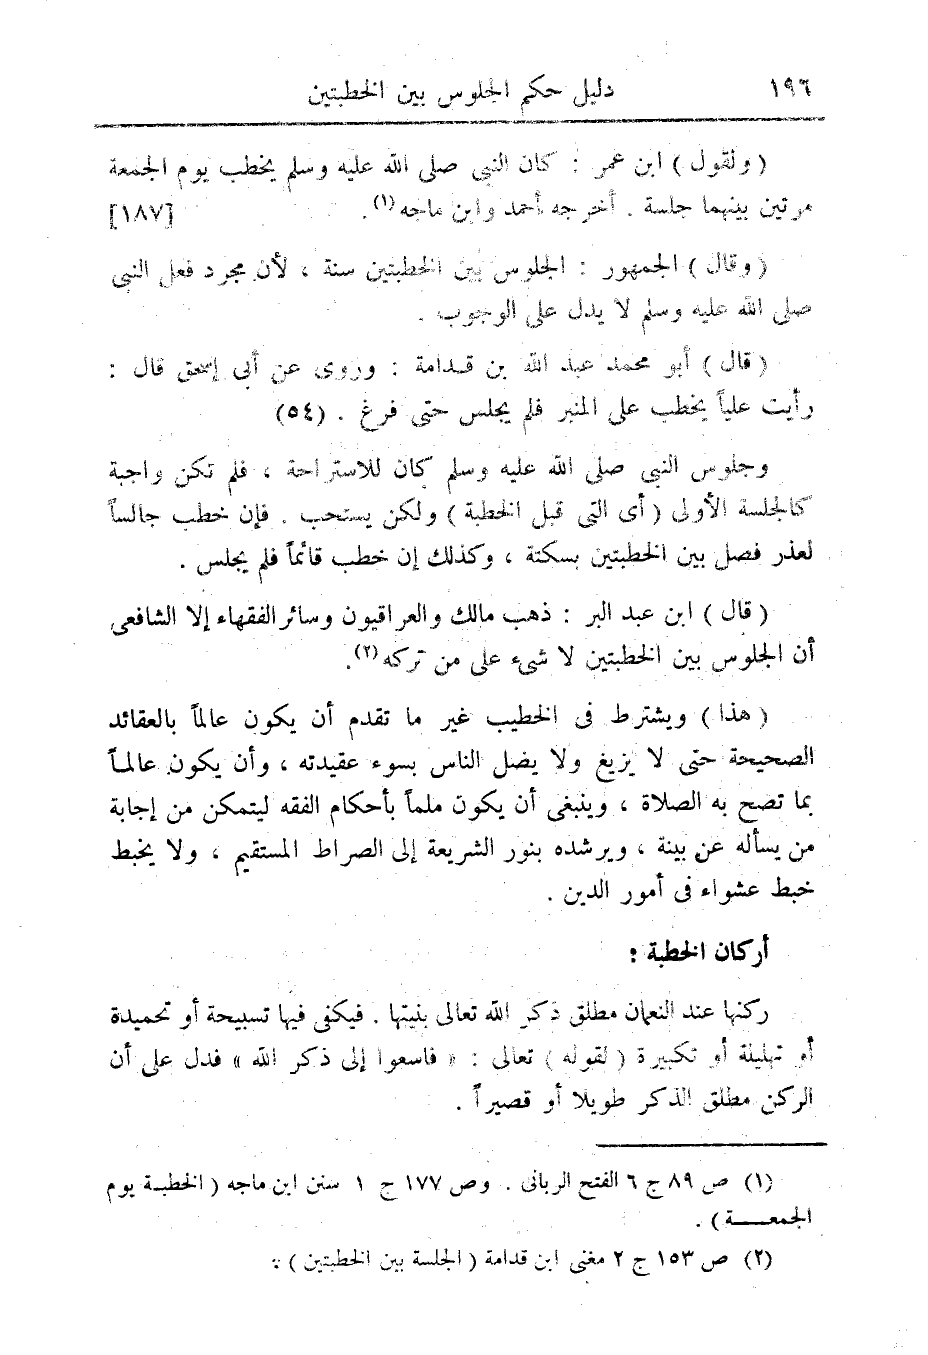 ١٩٦ دليل حكم الجلوس بين الخطبتين
( ولقول ) ابن عمر : كان النبى صلى الله عليه وسلم يخطب يوم الجمعة
مرتين بينهما جلسة . أخرجه أحمد وابن ماجه (١). [١٨٧]
( وقال ) الجمهور : الجلوس بين الخطبتين سنة ، لأن مجرد فعل النبى
صلى الله عليه وسلم لا يدل على الوجوب .
( قال ) أبو محمد عبد الله بن قدامة : وروى عن أبى إسحق قال :
رأيت علياً يخطب على المنبر فلم يجلس حتى فرغ . (٥٤)
وجلوس النبى صلى الله عليه وسلم كان للاستراحة ، فلم تكن واجبة
كالجلسة الأولى ( أى التى قبل الخطبة ) ولكن يستحب . فإن خطب جالساً
لعذر فصل بين الخطبتين بسكتة ، وكذلك إن خطب قائماً فلم يجلس .
( قال ) ابن عبد البر : ذهب مالك والعراقيون وسائر الفقهاء إلا الشافعى
أن الجلوس بين الخطبتين لا شىء على من تركه (٢).
( هذا ) ويشترط فى الخطيب غير ما تقدم أن يكون عالماً بالعقائد
الصحيحة حتى لا يزيغ ولا يضل الناس بسوء عقيدته ، وأن يكون عالماً
بما تصح به الصلاة ، وينبغى أن يكون ملماً بأحكام الفقه ليتمكن من إجابة
من يسأله عن بينة ، ويرشده بنور الشريعة إلى الصراط المستقيم ، ولا يخبط
خبط عشواء فى أمور الدين .
أركان الخطبة :
ركنها عند النعمان مطلق ذكر الله تعالى بنيتها . فيكفى فيها تسبيحة أو تحميدة
أو تهليلة أو تكبيرة ( لقوله ) تعالى : « فاسعوا إلى ذكر الله » فدل على أن
الركن مطلق الذكر طويلا أو قصيراً .
(١) ص ٨٩ ج ٦ الفتح الربانى . وص ١٧٧ ج ١ سنن ابن ماجه ( الخطبة يوم
الجمعة ) .
(٢) ص ١٥٣ ج ٢ مغنى ابن قدامة ( الجلسة بين الخطبتين ) :